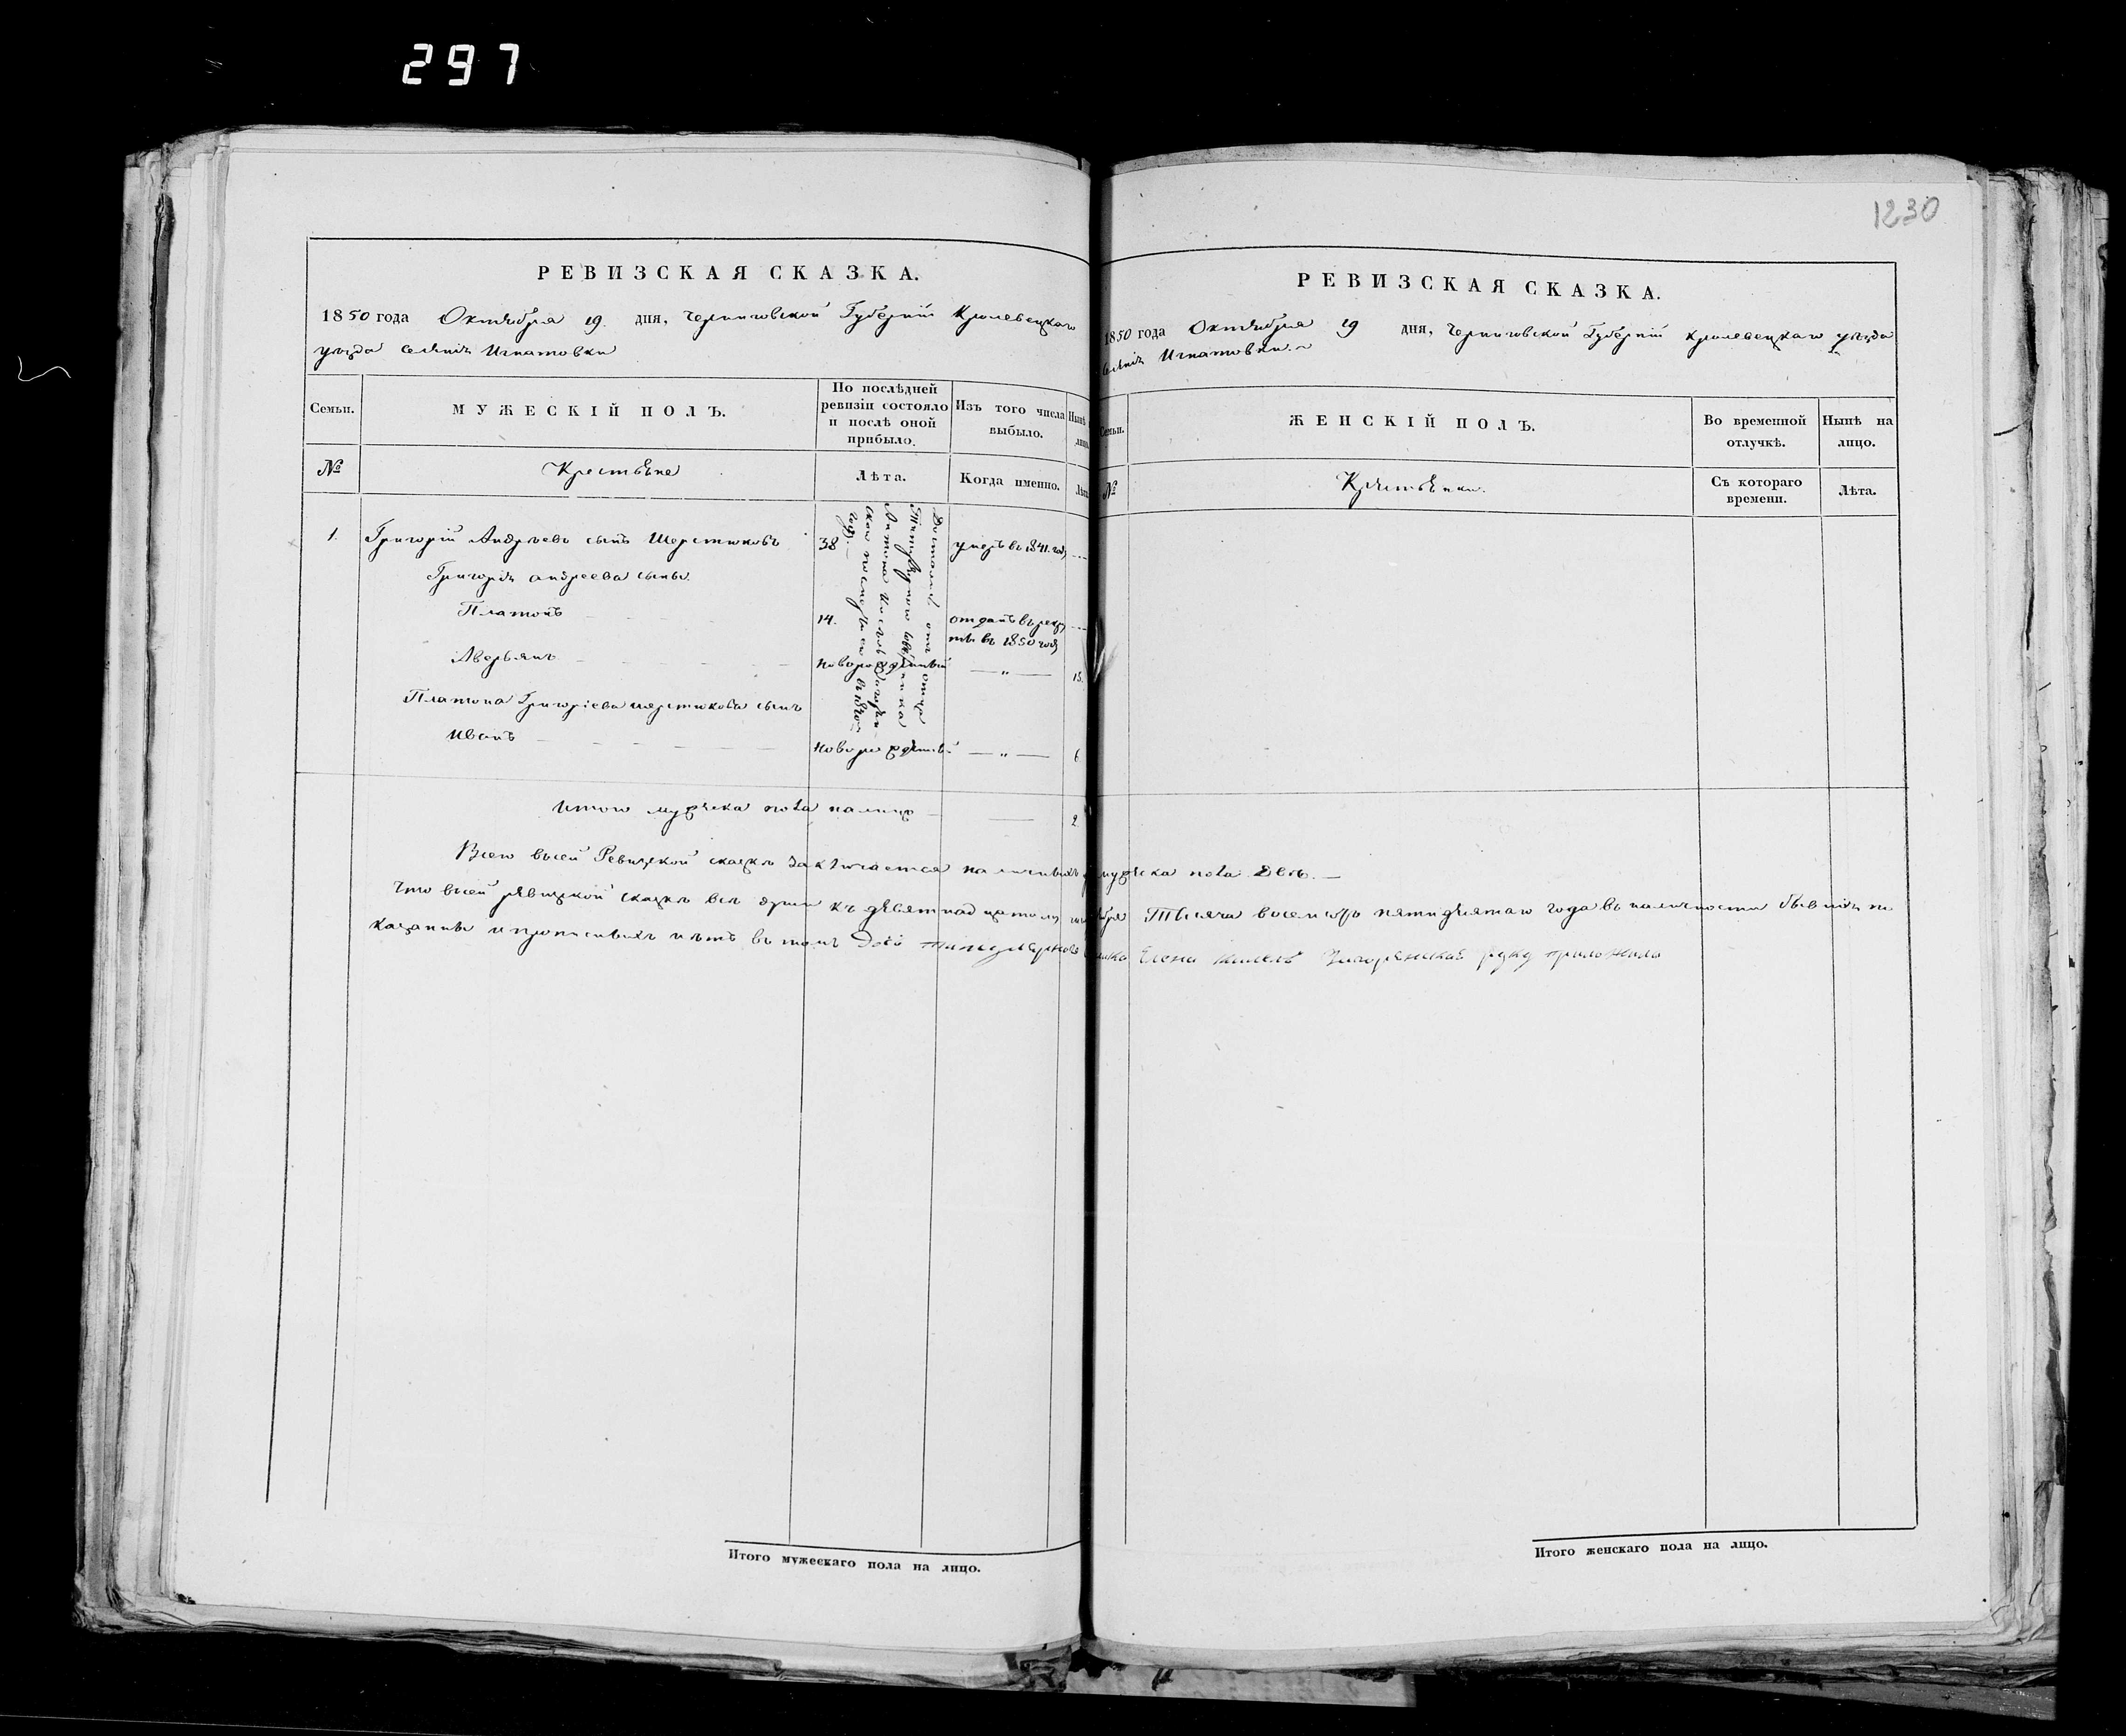 297
1230
РЕВИЗСКАЯ СКАЗКА.
1850 года Октября 19. дня, Черниговской Губерніи Кролевецкаго
уѣзда селенія Игнатовки
Семьи.
МУЖЕСКІЙ ПОЛЪ.
По послѣдней
ревизіи состояло
и послѣ оной
прибыло.
Изъ того числа
выбыло.
Нынѣ
лицо
№
Крестьяне
Лѣта.
Когда именно.
Лѣта
1. Григорій Андреевъ сынъ Шерстюковъ 38 умеръ въ 1841. году
Григорія Андреева сыны.
Платонъ 14. отданъ въ рекру
ты въ 1850 году
Аверьянъ новорожденный — „ — 15.
Платона Григоріева Шерстюкова сынъ
Иванъ новорожденный — „ — 6
Достались отъ отца
Антона
году.—
Итого мужеска пола налицо — 2.
Всего въ сей Ревизской сказкѣ заключается наличныхъ мужеска пола двѣ. —
Что въ сей ревизкой сказкѣ всѣ души къ девятнадцатому октября Тысяча восемсотъ пятидесятаго года въ наличности бывшія по
казаны и прописныхъ нѣтъ въ томъ Елена руку приложила
РЕВИЗСКАЯ СКАЗКА.
1850 года Октября 19 дня, Черниговской Губерніи Кролевецкаго уѣзда
селенія Игнатовки.
Семьи.
ЖЕНСКІЙ ПОЛЪ.
Во временной
отлучкѣ.
Нынѣ на
лицо.
№
Крестьянки.
Съ котораго
времени.
Лѣта.
Итого мужескаго пола на лицо.
Итого женскаго пола на лицо.